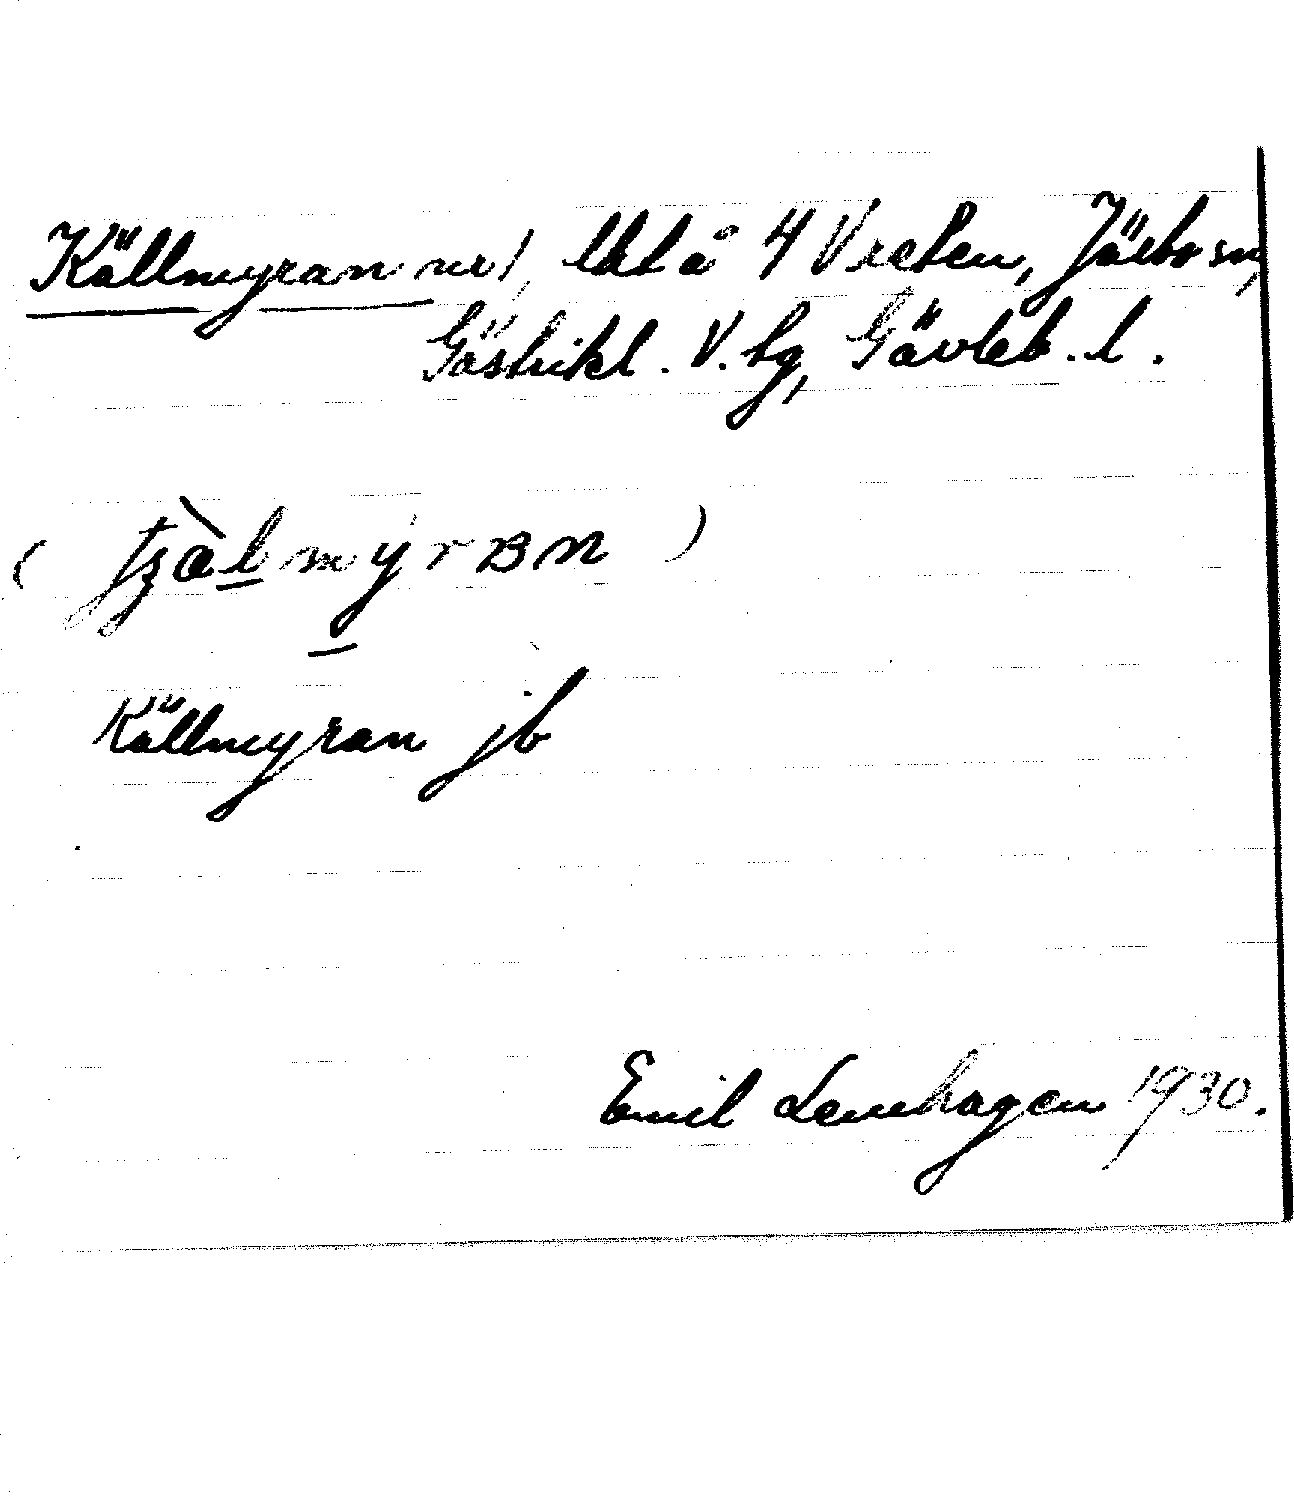 Källmyran myr, lht å 4 Vreten, Järbo sn,
Gästrikl. V. tg, Gävleb. l.
( tʒàlmyrʙn )
Källmyran jb
Emil Lennhagen 1930.